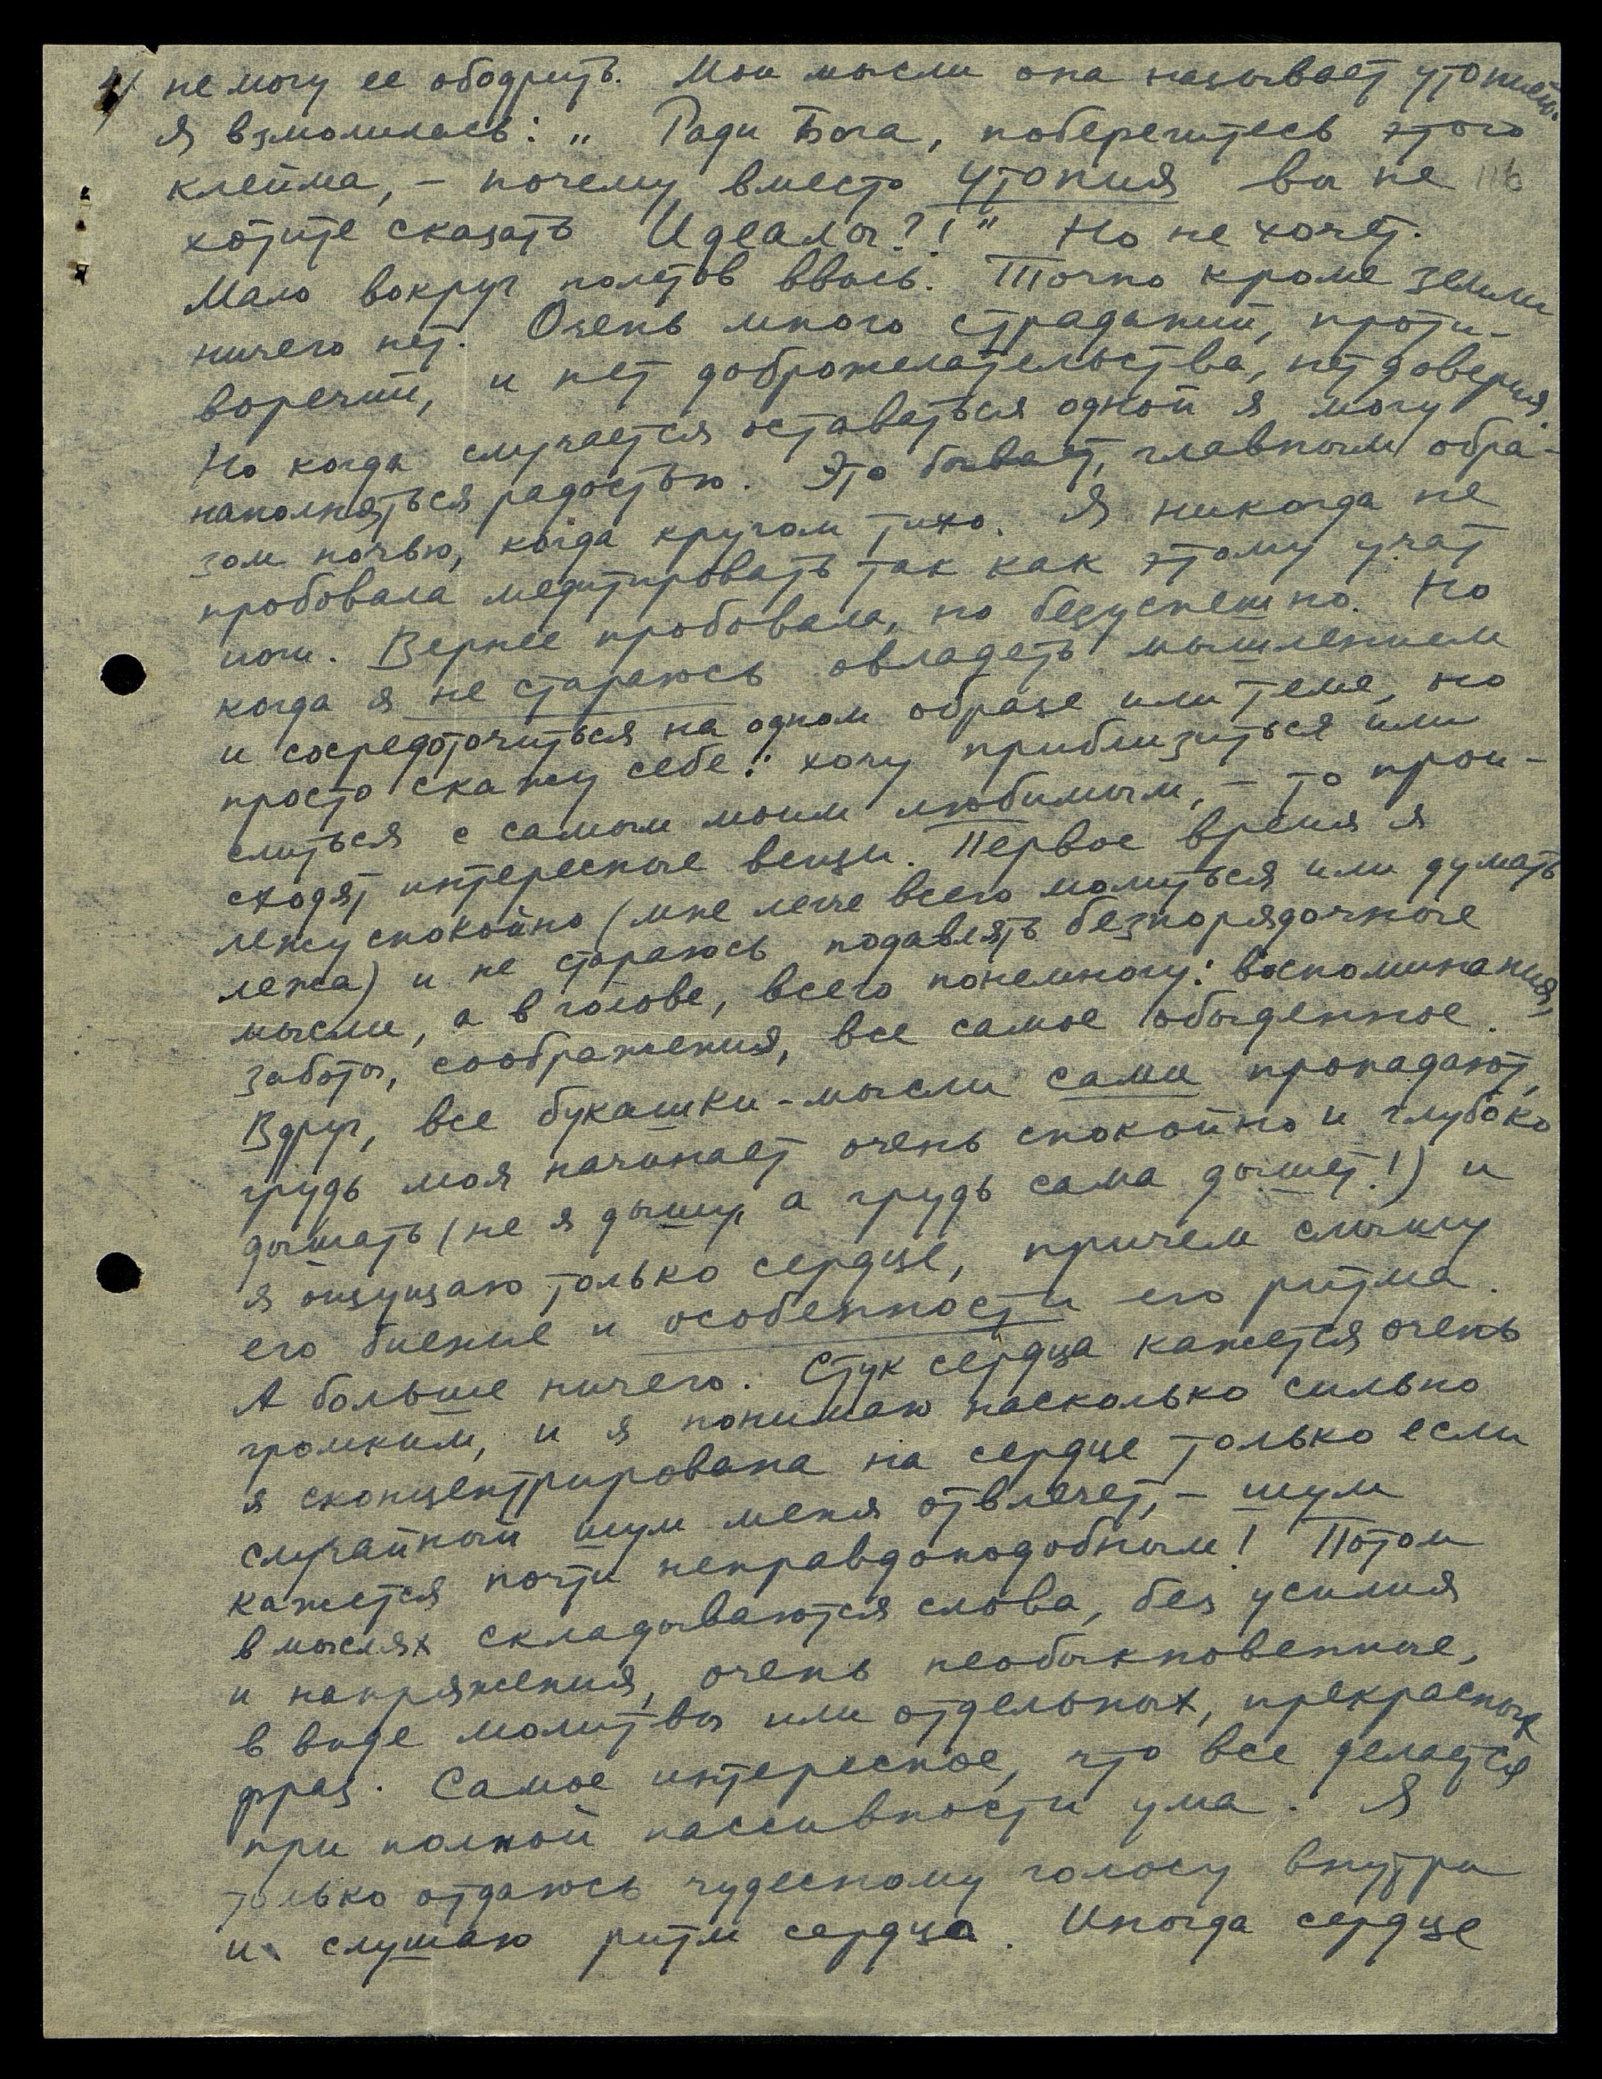 4/ не могу ее ободрить. Мои мысли она называет утопией.
Я взмолилась: „Ради Бога, поберегитесь этого
клейма, – почему вместо утопия вы не 116
хотите сказать Идеалы?!" Но не хочет.
Мало вокруг полетов ввысь. Точно кроме земли
ничего нет. Очень много страданий, проти-
воречий, и нет доброжелательства, нет доверия.
Но когда случается оставаться одной я могу
наполняться радостью. Это бывает, главным обра-
зом ночью, когда кругом тихо. Я никогда не
пробовала медитировать так как этому учат
йоги. Вернее пробовала, но безуспешно. Но
когда я не стараюсь овладеть мышлением
и сосредоточиться на одном образе или теме, но
просто скажу себе: хочу приблизиться или
слиться с самым моим любимым, – то прои-
сходят интересные вещи. Первое время я
лежу спокойно (мне легче всего молиться или думать
лежа) и не стараюсь подавлять безпорядочные
мысли, а в голове, всего понемногу: воспоминания,
заботы, соображения, все самое обыденное.
Вдруг, все букашки-мысли сами пропадают,
грудь моя начинает очень спокойно и глубоко
дышать (не я дышу, а грудь сама дышет!) и
я ощущаю только сердце, причем слышу
его биение и особенности его ритма.
А больше ничего. Стук сердца кажется очень
громким, и я понимаю насколько сильно
я сконцентрирована на сердце только если
случайный шум меня отвлечет, – шум
кажется почти неправдоподобным! Потом
в мыслях складываются слова, без усилия
и напряжения, очень необыкновенные,
в виде молитвы или отдельных, прекрасных
фраз. Самое интересное, что все делается
при полной пассивности ума. Я
только отдаюсь чудесному голосу внутри
и слушаю ритм сердца. Иногда сердце